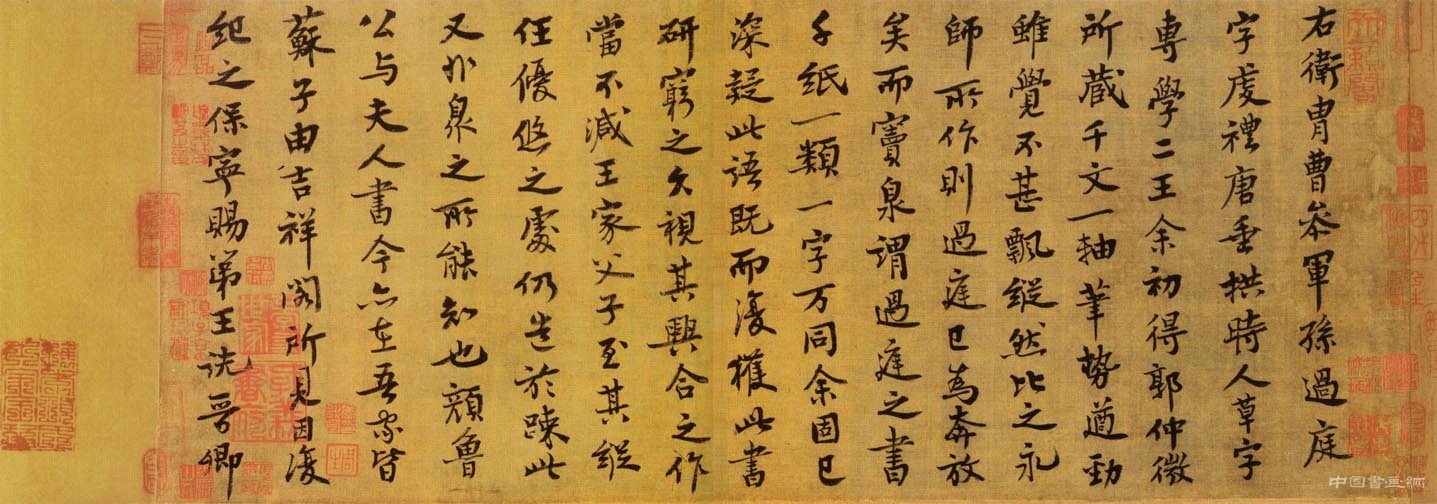 右衛胄曹叅軍孫過庭
字虔禮唐垂拱時人草字
專學二王余初得郭仲微
所蔵千文一軸筆勢遒勁
雖覺不甚飄縱然比之永
師所作則過庭已為奔放
矣而竇泉謂過庭之書
千紙一類一字万同余固已
深疑此語既而復獲此書
研窮之久視其興合之作
當不減王家父子至其縱
任優悠之處仍造於疎此
又非泉之所能知也顔魯
公与夫人書今亦在吾家皆
蘇子由吉祥閣所見因復
紀之保寧賜第王詵晉卿
中国書画網